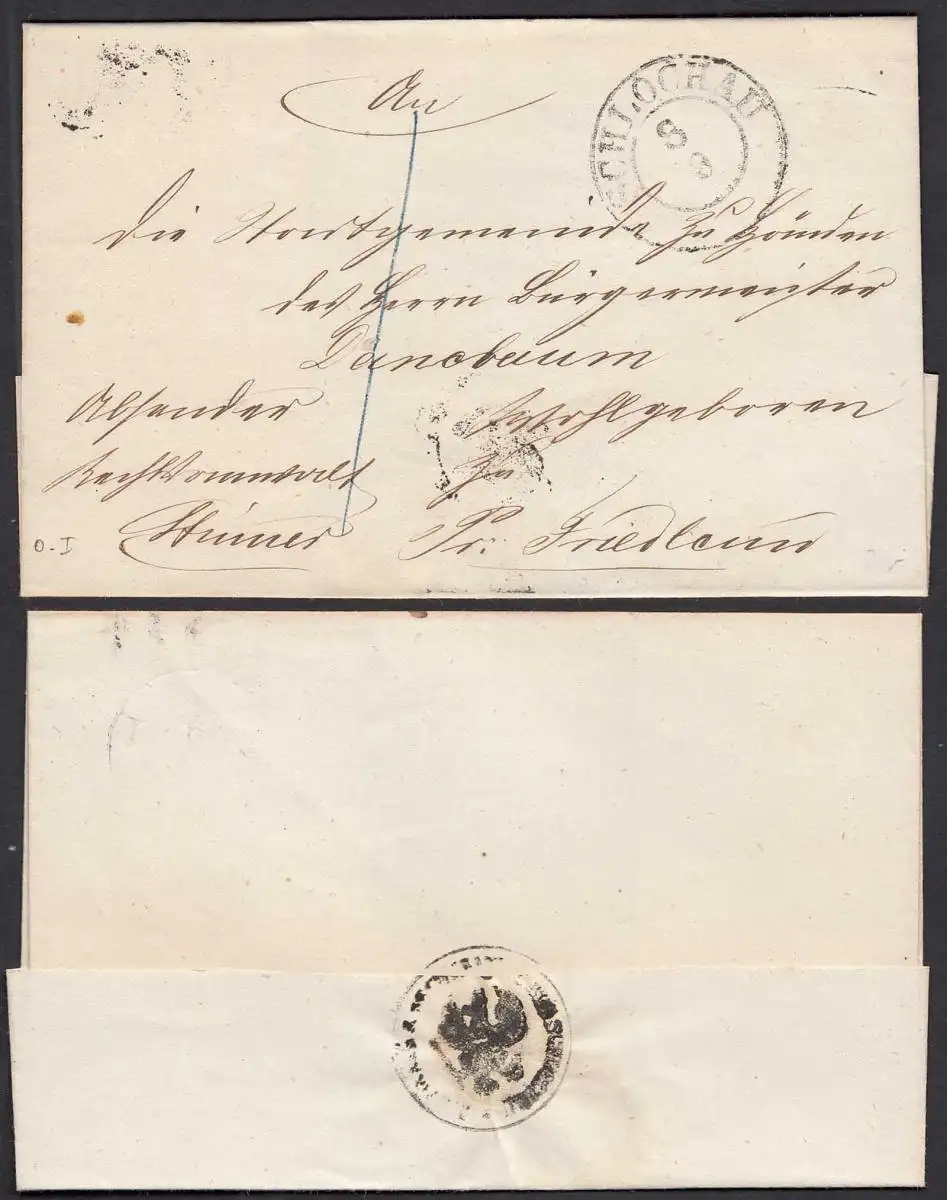 An
SCHLOCHAU
8
die Stadtgemeinde zu Händen
des Herrn Bürgermeister
Absender Wohlgeboren
Rechtsanwalt zu
Pr: Friedland
o. I